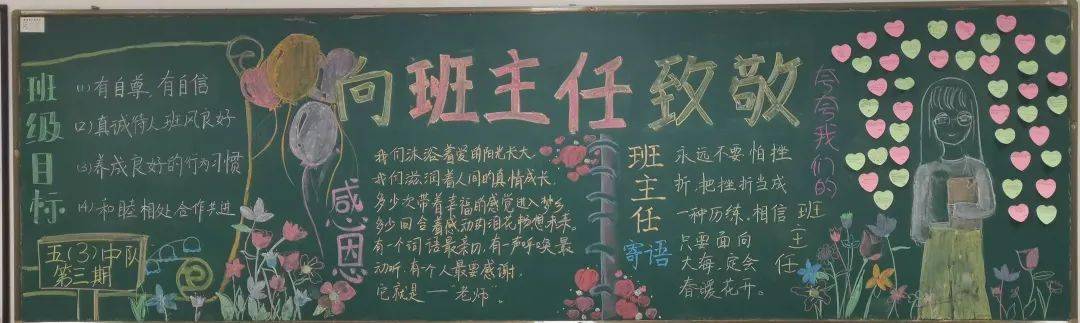 向班主任致敬
班级目标
(1)有自尊,有自信
(2)真诚待人班风良好
(3)养成良好的行为习惯
(4)和睦相处合作共进
五(3)中队
第三期
感恩
我们沐浴着爱的阳光长大
我们滋润着人间的真情成长
多少次带着幸福的感觉进入梦乡
多少回含着感动的泪花畅想未来。
有一个词语最亲切,有一声呼唤最
动听,有个人最要感谢,
它就是一“老师”
班主任
寄语
永远不要怕挫
折,把挫折当成
一种历练,相信
只要面向
大海,定会
春暖花开。
夸夸我们的
班主任